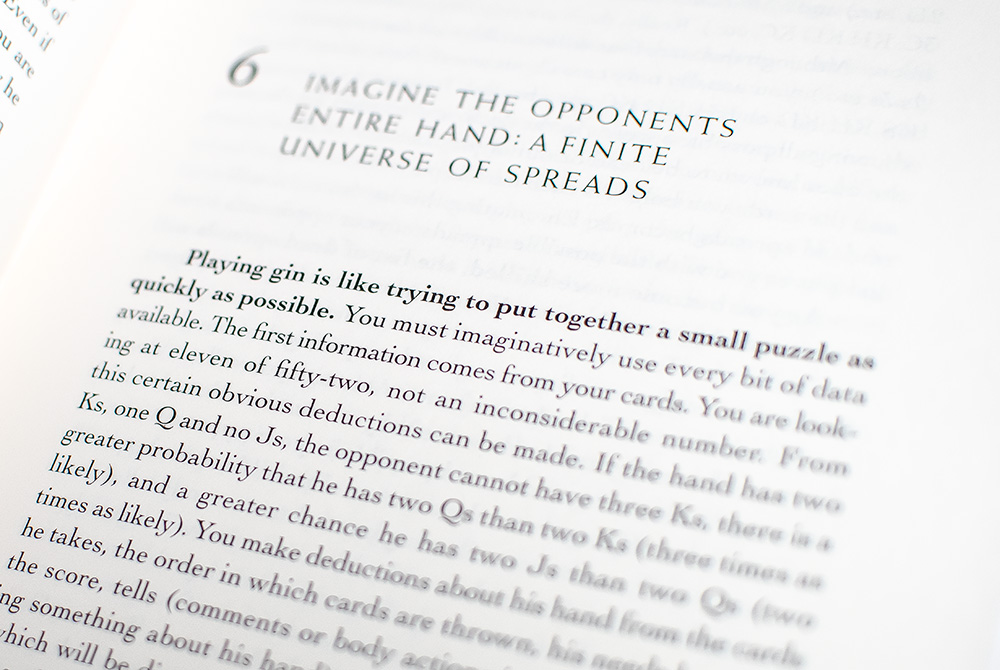 s of
Even if
ou are
he
6
IMAGINE THE OPPONENTS
ENTIRE HAND: A FINITE
UNIVERSE OF SPREADS
Playing gin is like trying to put together a small puzzle as
quickly as possible. You must imaginatively use every bit of data
available. The first information comes from your cards. You are look-
ing at eleven of fifty-two, not an inconsiderable number. From
this certain obvious deductions can be made. If the hand has two
Ks, one Q and no Js, the opponent cannot have three Ks, there is a
greater probability that he has two Qs than two Ks (three times as
likely), and a greater chance he has two Js than two Qs (two
times as likely). You make deductions about his hand from the cards
he takes, the order in which cards are thrown, his needs
the score, tells (comments or body
ng something about his
which will be